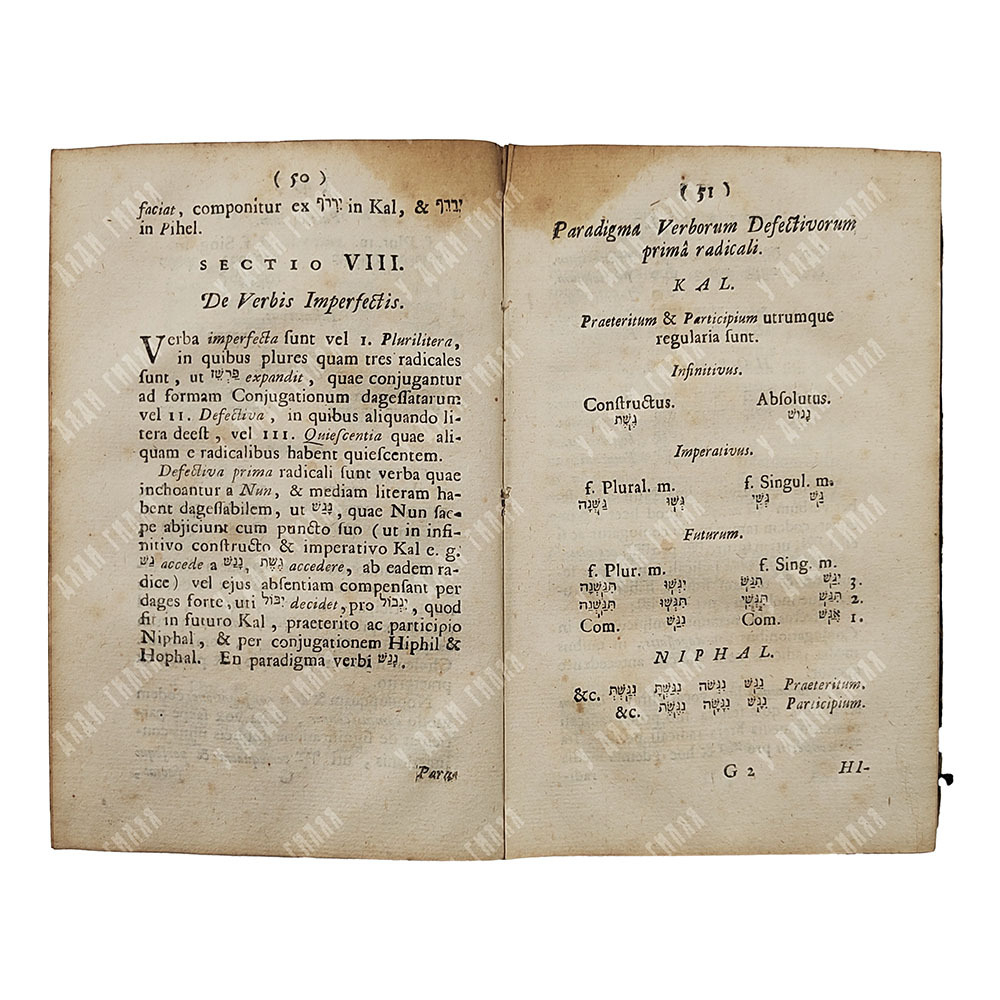 ( 50 )
faciat, componitur ex יִרְדֹּף in Kal, & יְרַדֵּף
in Pihel.
SECTIO VIII.
De Verbis Imperfectis.
Verba imperfecta ſunt vel 1. Plurilitera,
in quibus plures quam tres radicales
ſunt, ut פַּרְשֵׁז expandit, quae conjugantur
ad formam Conjugationum dageſſatarum
vel II. Defectiva, in quibus aliquando li-
tera deeſt, vel III. Quieſcentia quae ali-
quam e radicalibus habent quieſcentem.
Defectiva prima radicali ſunt verba quae
inchoantur a Nun, & mediam literam ha-
bent dageſſabilem, ut נָגַשׁ, quae Nun ſae-
pe abjiciunt cum puncto ſuo (ut in infi-
nitivo conſtructo & imperativo Kal e. g.
גַּשׁ accede a נָגַשׁ, גֶּשֶׁת accedere, ab eadem ra-
dice) vel ejus abſentiam compenſant per
dages forte, uti יִבּוֹל decidet, pro יִנְבּוֹל, quod
fit in futuro Kal, praeterito ac participio
Niphal, & per conjugationem Hiphil &
Hophal. En paradigma verbi נָגַשׁ.
Para-
( 51 )
Paradigma Verborum Defectivorum
primâ radicali.
KAL.
Praeteritum & Participium utrumque
regularia ſunt.
Infinitivus.
Conſtructus. Abſolutus.
גֶּשֶׁת נָגוֹשׁ
Imperativus.
f. Plural. m. f. Singul. m.
גַּשְׁנָה גְּשׁוּ גְּשִׁי גַּשׁ
Futurum.
f. Plur. m. f. Sing. m.
תִּגַּשְׁנָה יִגְּשׁוּ תִּגַּשׁ יִגַּשׁ 3.
תִּגַּשְׁנָה תִּגְּשׁוּ תִּגְּשִׁי תִּגַּשׁ 2.
Com. נִגַּשׁ Com. אֶגַּשׁ 1.
NIPHAL.
&c. נִגַּשְׁתְּ נִגַּשְׁתָּ נִגְּשָׁה נִגַּשׁ Praeteritum.
&c. נִגֶּשֶׁת נִגָּשָׁה נִגָּשׁ Participium.
G 2 HI-
У ДЯДИ ГИЛЯЯ